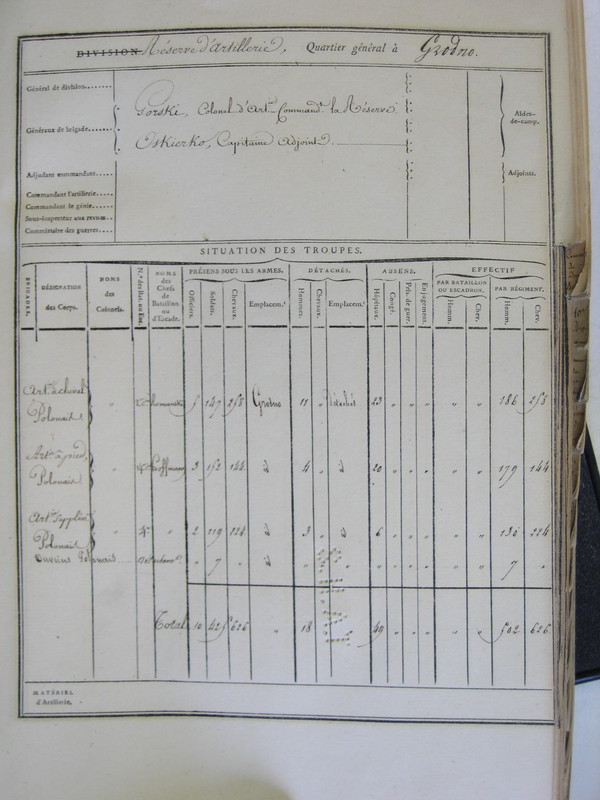 DIVISION Réserve d'Artillerie, Quartier général à Grodno.
Général de division.......
Généraux de brigade.......
Gorski, Colonel d'Art.rie Command.t la Réserve.
Oskierko, Capitaine Adjoint.
Aides-de-camp.
Adjudant commandant.....
Adjoints.
Commandant l'artillerie.....
Commandant le génie.....
Sous-inspecteur aux revues....
Commissaire des guerres....
SITUATION DES TROUPES.
BRIGADES. DÉSIGNATION des Corps. NOMS des Colonels. N.os des Bat. ou Esc. NOMS des Chefs de Bataillon ou d'Escade. PRÉSENS SOUS LES ARMES. DÉTACHÉS. ABSENS. EFFECTIF
PAR BATAILLON OU ESCADRON. PAR RÉGIMENT.
Officiers. Soldats. Chevaux. Emplacem.t Hommes. Chevaux. Emplacem.t Hôpitaux. Congé. Pris. de guer. En jugement. Homm. Chev. Homm. Chev.
Art. à cheval
Polonais " 5 147 258 Grodno 11 " Détachés 23 " " " " " 186 258
Art. à pied
Polonais " Hoffmann 3 152 144 d 4 " d 20 " " " " " 179 144
Art. Supplém.
Polonais " " 2 119 224 d 3 " d 6 " " " " " 130 224
Ouvriers Polonais " 7 " d " " " " " " " " 7 "
Total 10 425 626 " 18 49 " " " " " 502 626
MATÉRIEL
d'Artillerie.